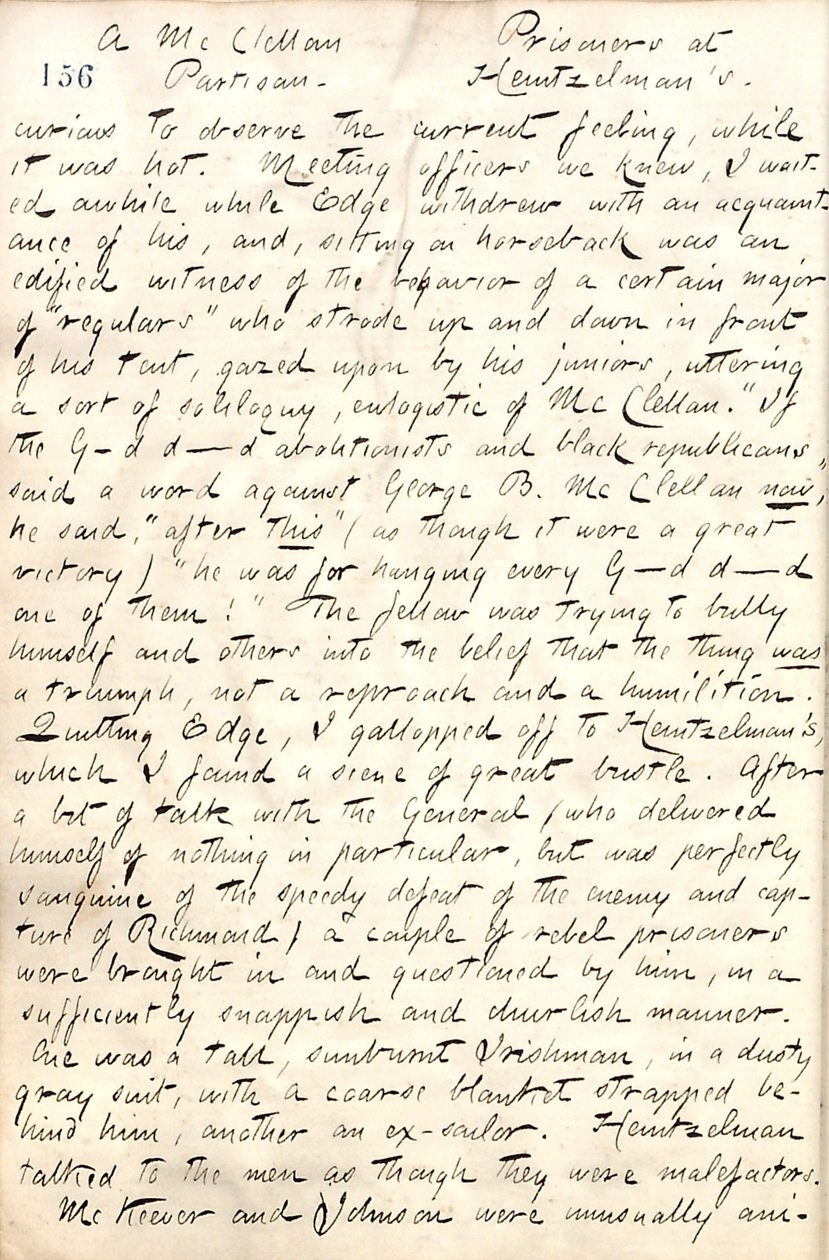 A Mc Clellan Prisoners at
156 Partisan. Heintzelman's.
curious to observe the current feeling, while
it was hot. Meeting officers we knew, I wait-
ed awhile while Edge withdrew with an acquaint-
ance of his, and, sitting on horseback was an
edified witness of the behavior of a certain major
of "regulars" who strode up and down in front
of his tent, gazed upon by his juniors, uttering
a sort of soliloquy, eulogistic of Mc Clellan. "If
the G-d d—d abolitionists and black republicans
said a word against George B. Mc Clellan now,"
he said, "after this" (as though it were a great
victory) "he was for hanging every G-d d—d
one of them!" The fellow was trying to bully
himself and others into the belief that the thing was
a triumph, not a reproach and a humilition.
Quitting Edge, I gallopped off to Heintzelman's,
which I found a scene of great bustle. After
a bit of talk with the General (who delivered
himself of nothing in particular, but was perfectly
sanguine of the speedy defeat of the enemy and cap-
ture of Richmond) a couple of rebel prisoners
were brought in and questioned by him, in a
sufficiently snappish and churlish manner.
One was a tall, sunburnt Irishman, in a dusty
gray suit, with a coarse blanket strapped be-
hind him, another an ex-sailor. Heintzelman
talked to the men as though they were malefactors.
McKeever and Johnson were unusually ani-